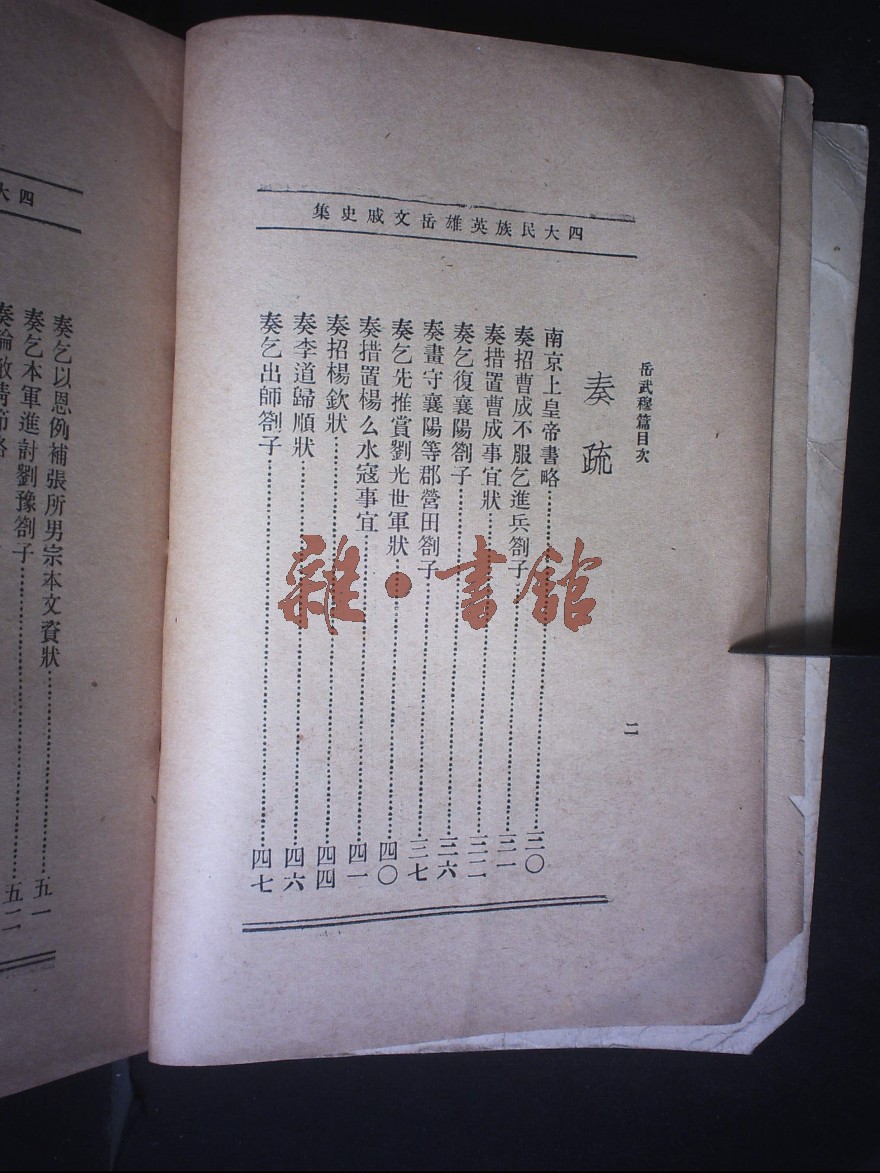 四大民族英雄岳文戚史集
岳武穆篇目次
二
奏疏
南京上皇帝書略……三〇
奏招曹成不服乞進兵劄子……三一
奏措置曹成事宜狀……三二
奏乞復襄陽劄子……三六
奏畫守襄陽等郡營田劄子……三七
奏乞先推賞劉光世軍狀……四〇
奏措置楊么水寇事宜……四一
奏招楊欽狀……四四
奏李道歸順狀……四六
奏乞出師劄子……四七
雜·書館
四大
奏乞以恩例補張所男宗本文資狀……五一
奏乞本軍進討劉豫劄子……五二